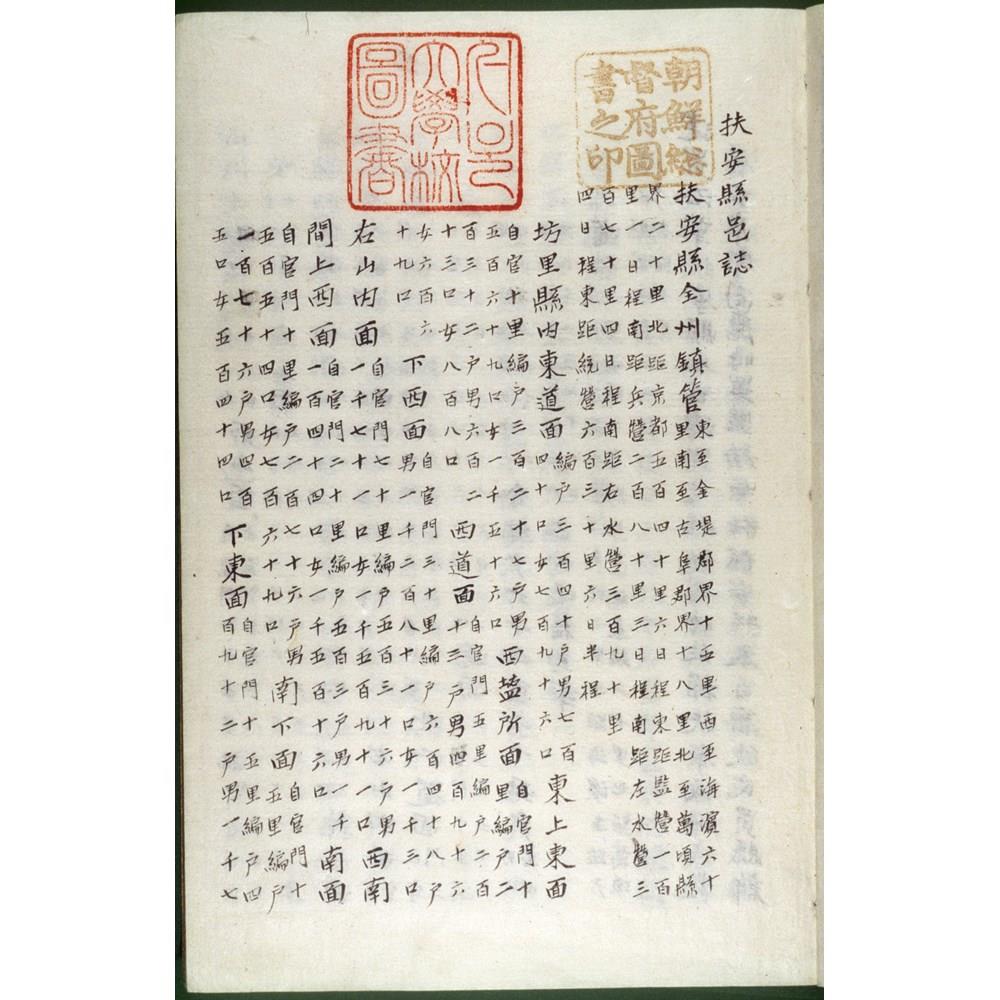 朝鮮總
督府圖
書之印
서울
大學校
圖書
扶安縣邑誌
扶安縣全州鎭管
東至金堤郡界十五里西至海濱六十
里南至古阜郡界十八里北至萬頃縣
界二十里北距京都五百四十里六日程東距監營一百
里一日程南距兵營二百八十里三日程南距左水營三
百七十里四日程南距右水營三百九十里
四日程東距統營六百三十里六日半程
坊里縣內東道面
編戶三百四十戶男七百
四十口女七百九十六口
東上東面
自官十里編戶三百二十七戶男
五百六十九口女一千五十六口
西塩所面
自官門十
里編戶二
百三十二戶男六百二
十三口女八百八口
西道面
自官門五里編戶二百
十三戶男四百九十六
女六百六
十九口
下西面
自官門三十里編戶六百四十八戶
男一千二百八十一口女一千三口
右山內面
自官門七十里編戶五百三十六戶男
一千七十一口女一千五百九十一口
西南
間上西面
自官門二十里編戶五百三戶男一千
一百四十四口女一千五百十六口
南面
自官門十里編戶二百七十六戶男
五百五十四口女七百六十九口
南下面
自官門十
五里編戶
一百七十六戶男四百
五口女五百四十四口
下東面
自官門十五里編戶四
百九十二戶男一千七